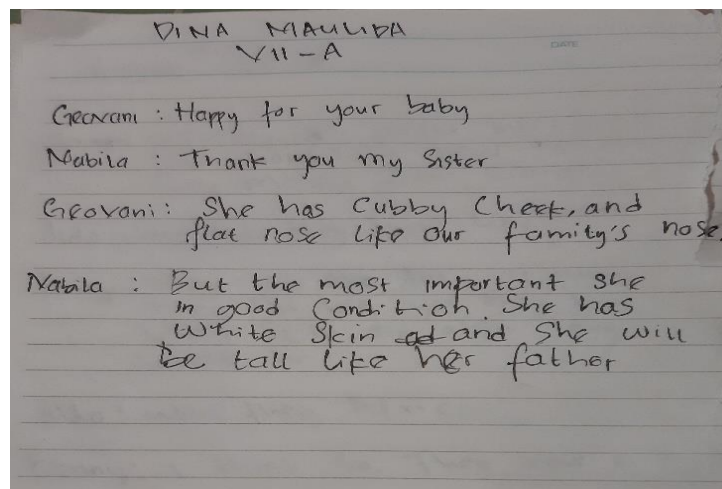 DINA MAULIDA
VII - A
DATE
Geovani : Happy for your baby
Nabila : Thank you my Sister
Geovani : She has Cubby Cheek, and
flat nose like our family's nose.
Nabila : But the most important she
in good Condition. She has
White Skin and She will
be tall like her father